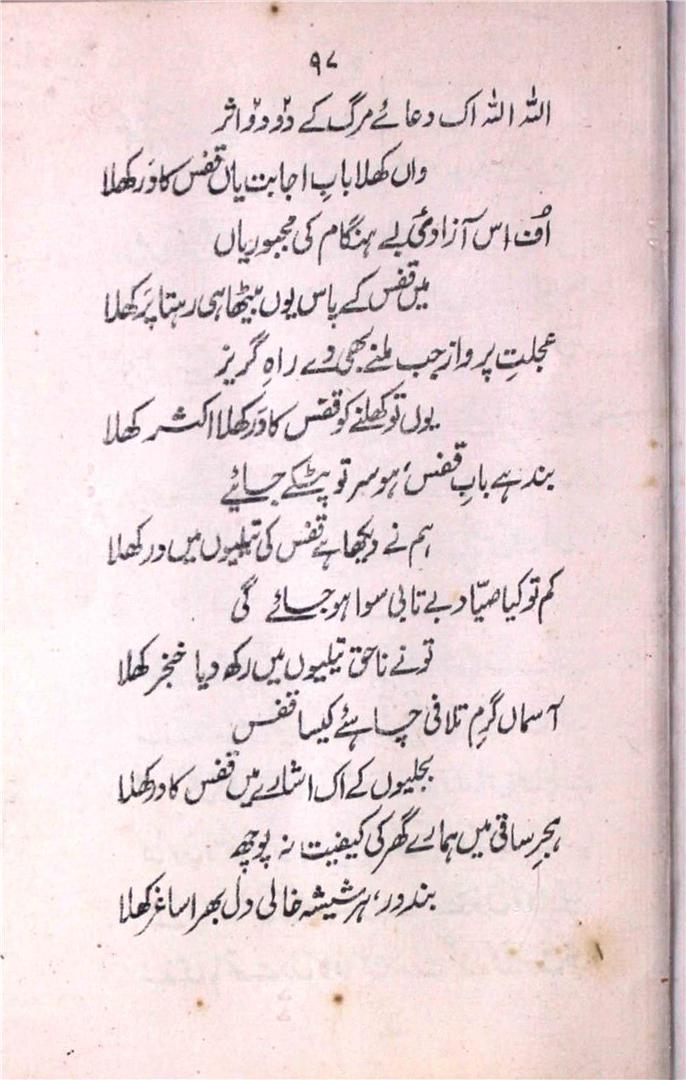 ۹۷
اللہ اللہ اک دعائے مرگ کے دو دو اثر
واں کھلا بابِ اجابت یاں قفس کا در کھلا
اُف اس آزادیٔ بے ہنگام کی مجبوریاں
میں قفس کے پاس یوں بیٹھا ہی رہتا پر کھلا
عجلتِ پرواز جب ملنے بھی دے راہِ گریز
یوں تو کھلنے کو قفس کا در کھلا اکثر کھلا
بند ہے بابِ قفس، ہو سر تو پٹکے جائیے
ہم نے دیکھا ہے قفس کی تیلیوں میں در کھلا
کم تو کیا صیّاد بے تابی سوا ہو جائے گی
تو نے ناحق تیلیوں میں رکھ دیا خنجر کھلا
آسماں گرمِ تلافی چاہئے کیسا قفس
بجلیوں کے اک اشارے میں قفس کا در کھلا
ہجرِ ساقی میں ہمارے گھر کی کیفیت نہ پوچھ
بند در، ہر شیشہ خالی دل بھرا ساغر کھلا